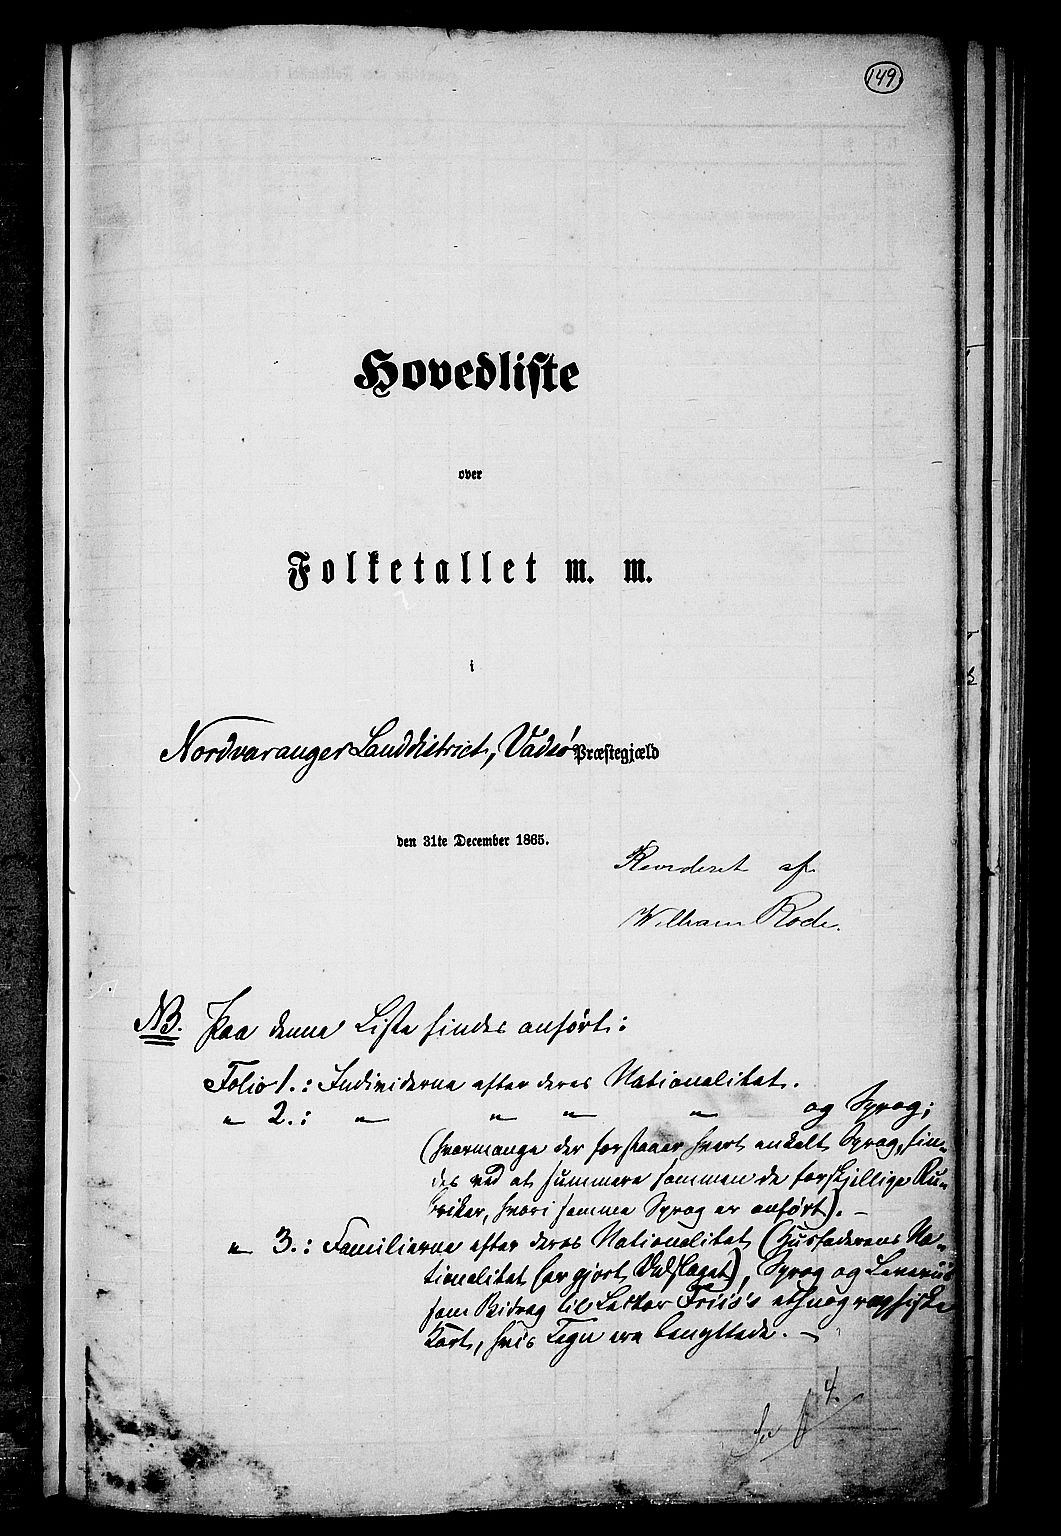 149
Hovedliste
over
Folketallet m. m.
i
Nordvaranger Landdistrict, Vadsø Præstegjæld
den 31te December 1865.
Revideret af
William Rode.
NB. Paa denne Liste findes anført:
Folio 1.: Individerne efter deres Nationalitet.
„ 2.: „ „ „ „ og Sprog;
(hvormange der forstaaer hvert enkelt Sprog, fin-
des ved at summere sammen de forskjellige Ru-
briker, hvori samme Sprog er anført). —
„ 3.: Familierne efter deres Nationalitet (Husfaderens Na-
tionalitet har gjort Udslaget), Sprog og Leveviis
som Bidrag til Lector Friis's ethnographiske
Kort, hvis Tegn ere benyttede. —
4.